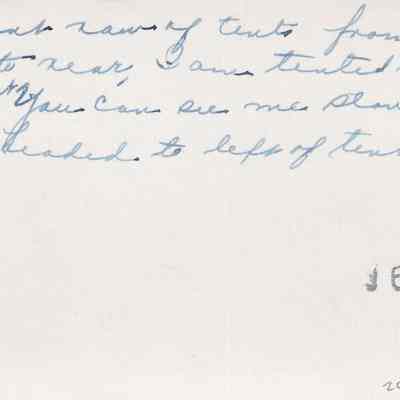 row of tents from
to rear, I am tented
You can see me
headed to left of
16